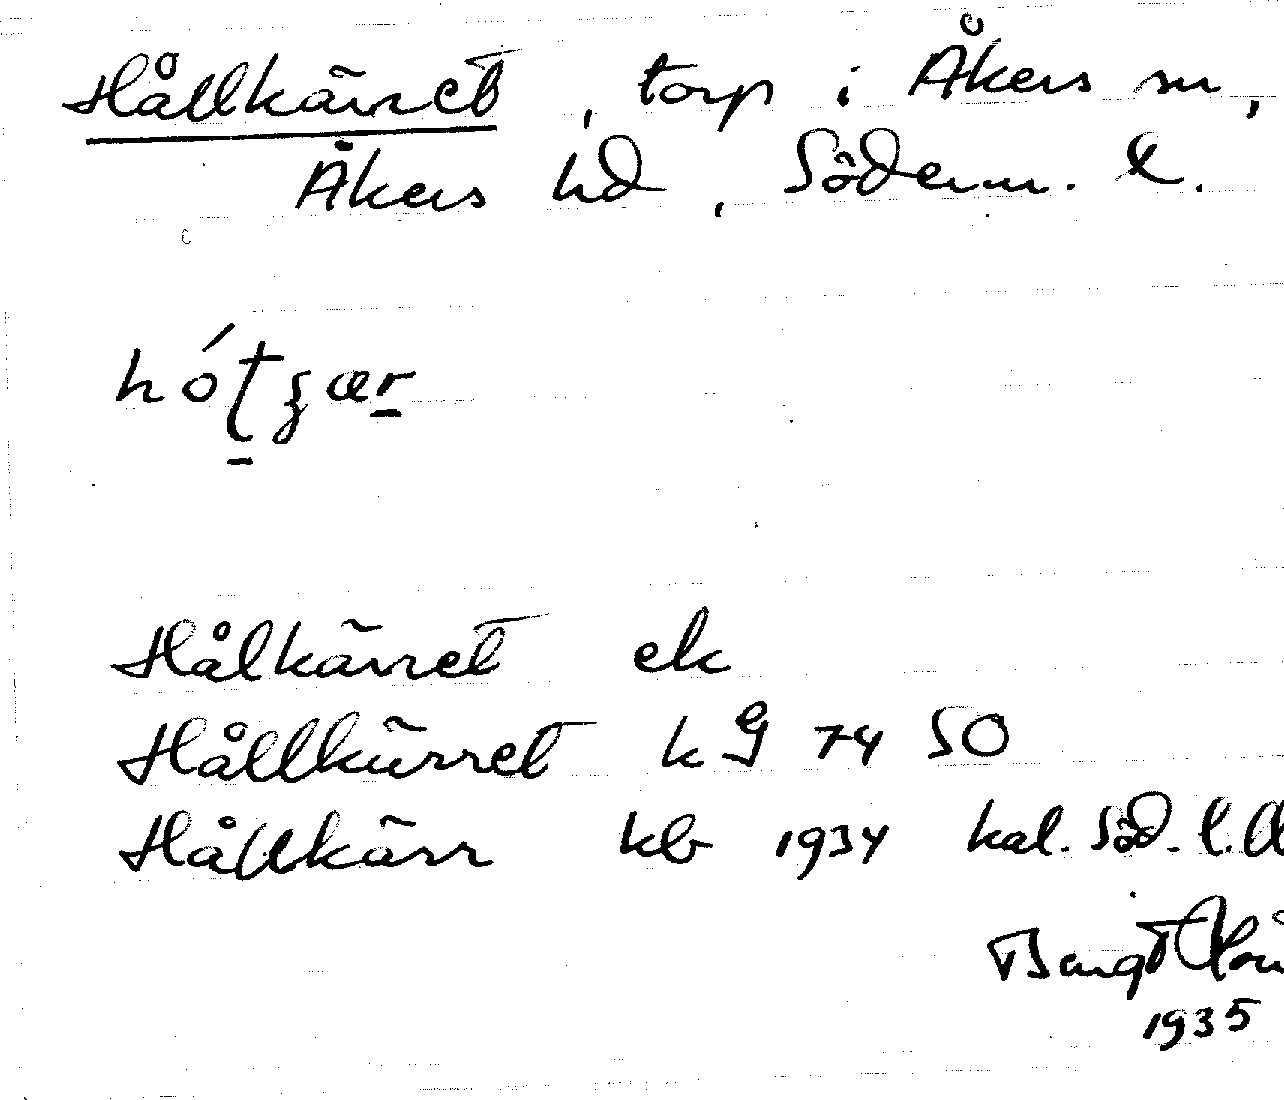 Hållkärret, torp i Åkers sn,
Åkers hd, Söderm. l.
Hålkärret ek
Hållkärret kg 74 SO
Hållkärr kb 1934 kal. Söd. l.
Bengt
1935